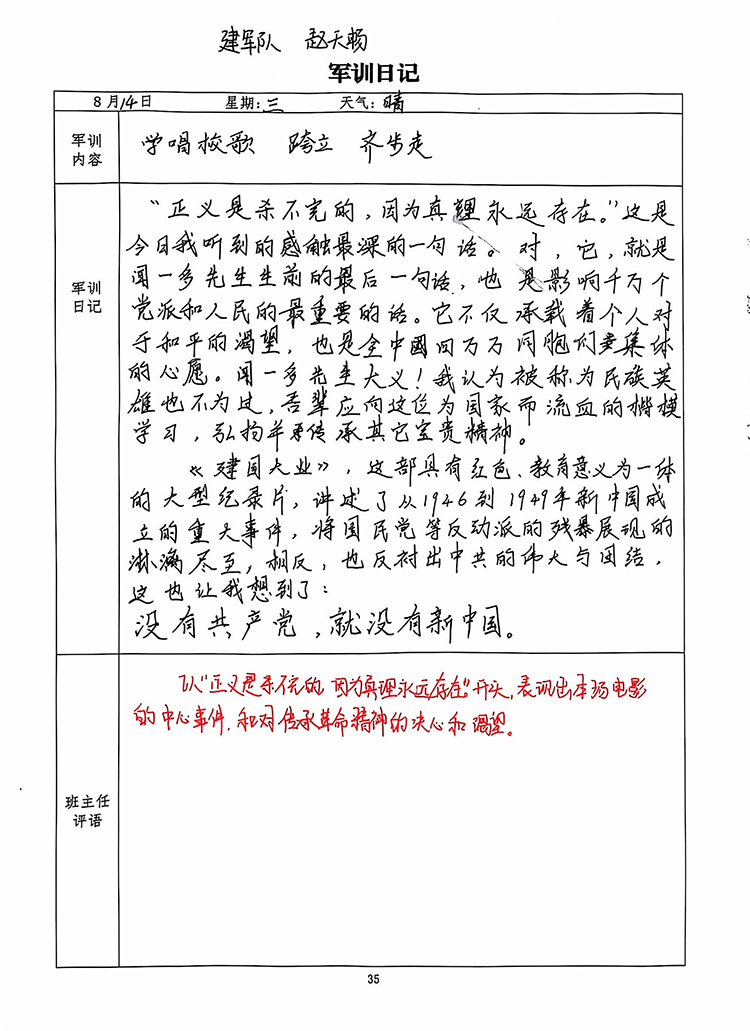 建军队 赵天畅
军训日记
8月14日 星期:三 天气:晴
军训内容
学唱校歌 跨立 齐步走
军训日记
“正义是杀不完的，因为真理永远存在。”这是
今日我听到的感触最深的一句话。对，它，就是
闻一多先生生前的最后一句话，也是影响千万个
党派和人民的最重要的话。它不仅承载着个人对
于和平的渴望，也是全中國四万万同胞们集体
的心愿。闻一多先生大义！我认为被称为民族英
雄也不为过，吾辈应向这位为国家而流血的楷模
学习，弘扬并传承其它宝贵精神。
《建国大业》，这部具有红色、教育意义为一体
的大型纪录片，讲述了从1946到1949年新中国成
立的重大事件，将国民党等反动派的残暴展现的
淋漓尽至，相反，也反衬出中共的伟大与团结，
这也让我想到了：
没有共产党，就没有新中国。
班主任评语
以“正义是杀不完的，因为真理永远存在”开头，表现出本场电影
的中心事件，和对传承革命精神的决心和渴望。
35